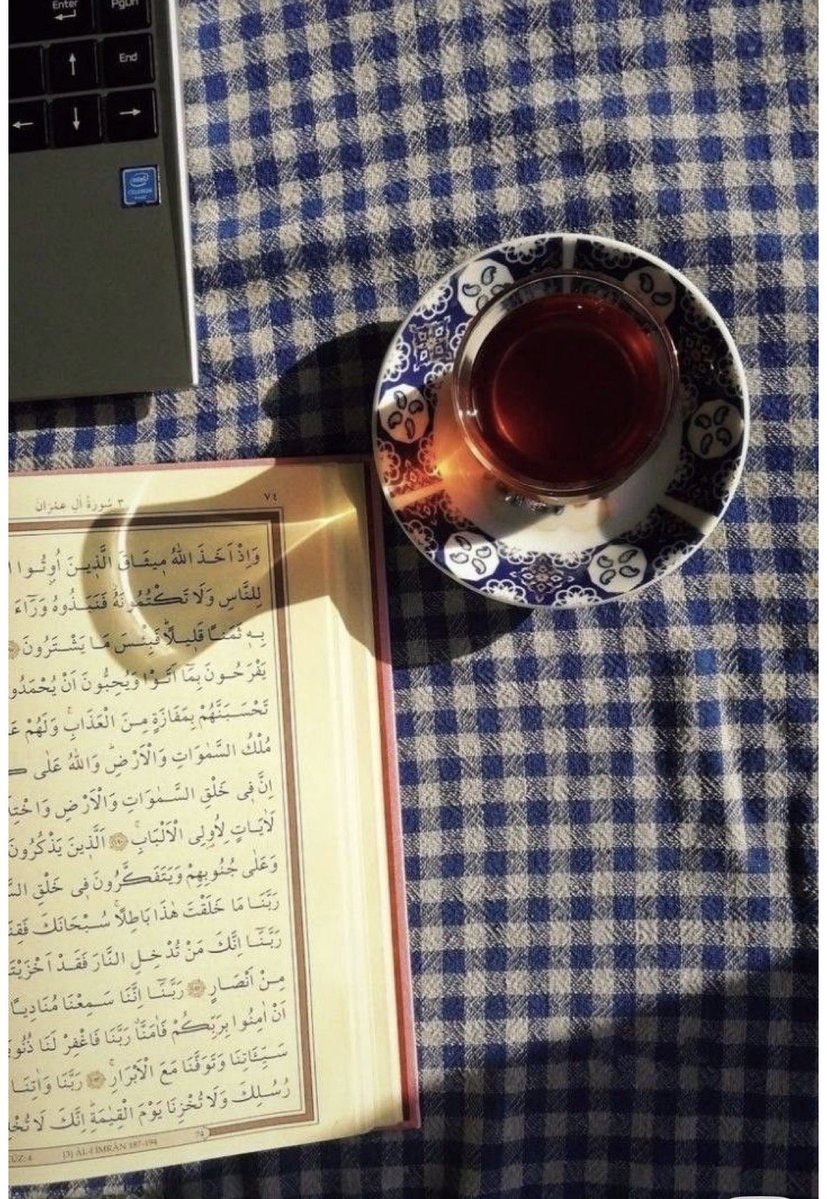 Enter
PgDn
End
intel
CELERON
٣ سُورَةُ اٰلِ عِمْرَانَ
٧٤
وَاِذْ اَخَذَ اللّٰهُ مٖيثَاقَ الَّذٖينَ اُو۫تُوا
لِلنَّاسِ وَلَا تَكْتُمُونَهُ فَنَبَذُوهُ وَرَٓاءَ
بِهٖ ثَمَنًا قَلٖيلًا فَبِئْسَ مَا يَشْتَرُونَ
يَفْرَحُونَ بِمَٓا اَتَوْا وَيُحِبُّونَ اَنْ يُحْمَدُو
تَحْسَبَنَّهُمْ بِمَفَازَةٍ مِنَ الْعَذَابِ وَلَهُمْ
مُلْكُ السَّمٰوَاتِ وَالْاَرْضِ وَاللّٰهُ عَلٰى
اِنَّ فٖي خَلْقِ السَّمٰوَاتِ وَالْاَرْضِ
لَاٰيَاتٍ لِاُو۬لِي الْاَلْبَابِ اَلَّذٖينَ يَذْكُرُونَ
وَعَلٰى جُنُوبِهِمْ وَيَتَفَكَّرُونَ فٖي خَلْقِ
رَبَّنَا مَا خَلَقْتَ هٰذَا بَاطِلًا سُبْحَانَكَ
رَبَّنَٓا اِنَّكَ مَنْ تُدْخِلِ النَّارَ فَقَدْ
مِنْ اَنْصَارٍ رَبَّنَٓا اِنَّنَا سَمِعْنَا مُنَادِيًا
اَنْ اٰمِنُوا بِرَبِّكُمْ فَاٰمَنَّا رَبَّنَا فَاغْفِرْ لَنَا
سَيِّـَٔاتِنَا وَتَوَفَّنَا مَعَ الْاَبْرَارِ رَبَّنَا وَاٰتِنَا
رُسُلِكَ وَلَا تُخْزِنَا يَوْمَ الْقِيٰمَةِ اِنَّكَ لَا
CÜZ: 4 [3] ÂL-İ İMRÂN 187-194 74